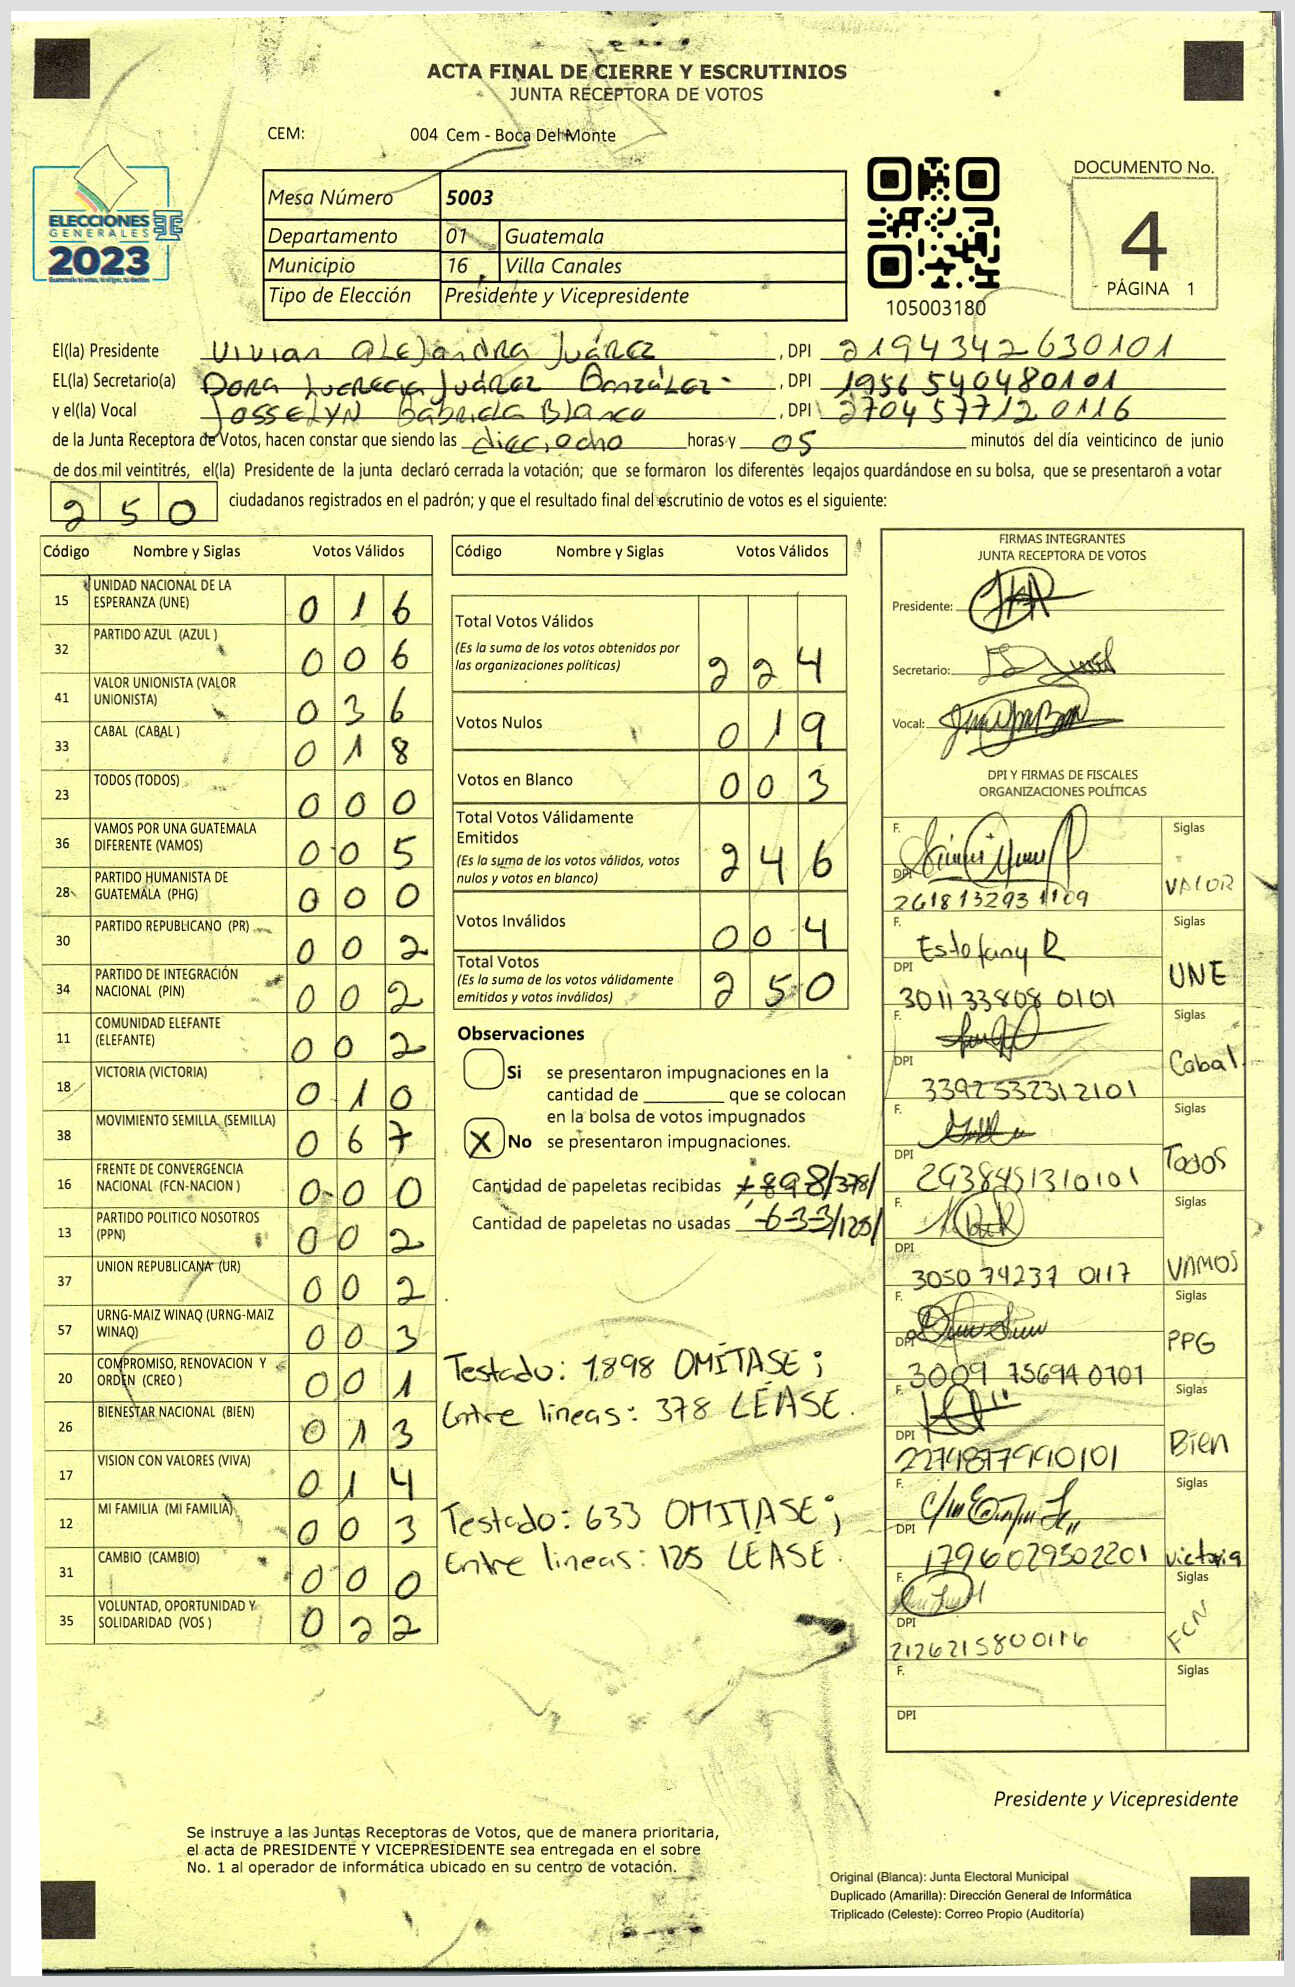 ACTA FINAL DE CIERRE Y ESCRUTINIOS
JUNTA RECEPTORA DE VOTOS
CEM: 004 Cem - Boca Del Monte
ELECCIONES
GENERALES
2023
Mesa Número 5003
Departamento 01 Guatemala
Municipio 16 Villa Canales
Tipo de Elección Presidente y Vicepresidente
105003180
DOCUMENTO No.
4
PÁGINA 1
El(la) Presidente Vivian Alejandra Juárez , DPI 2194342630101
EL(la) Secretario(a) Dora Lucrecia Juárez González- , DPI 1956540480101
y el(la) Vocal Josselyn Gabriela Blanco , DPI 2704577120116
de la Junta Receptora de Votos, hacen constar que siendo las dieciocho horas y 05 minutos del día veinticinco de junio
de dos mil veintitrés, el(la) Presidente de la junta declaró cerrada la votación; que se formaron los diferentes legajos guardándose en su bolsa, que se presentaron a votar
250 ciudadanos registrados en el padrón; y que el resultado final del escrutinio de votos es el siguiente:
Código Nombre y Siglas Votos Válidos
15 UNIDAD NACIONAL DE LA ESPERANZA (UNE) 016
32 PARTIDO AZUL (AZUL ) 006
41 VALOR UNIONISTA (VALOR UNIONISTA) 036
33 CABAL (CABAL ) 018
23 TODOS (TODOS) 000
36 VAMOS POR UNA GUATEMALA DIFERENTE (VAMOS) 005
28 PARTIDO HUMANISTA DE GUATEMALA (PHG) 000
30 PARTIDO REPUBLICANO (PR) 002
34 PARTIDO DE INTEGRACIÓN NACIONAL (PIN) 002
11 COMUNIDAD ELEFANTE (ELEFANTE) 002
18 VICTORIA (VICTORIA) 010
38 MOVIMIENTO SEMILLA (SEMILLA) 067
16 FRENTE DE CONVERGENCIA NACIONAL (FCN-NACION ) 000
13 PARTIDO POLITICO NOSOTROS (PPN) 002
37 UNION REPUBLICANA (UR) 002
57 URNG-MAIZ WINAQ (URNG-MAIZ WINAQ) 003
20 COMPROMISO, RENOVACION Y ORDEN (CREO ) 001
26 BIENESTAR NACIONAL (BIEN) 013
17 VISION CON VALORES (VIVA) 014
12 MI FAMILIA (MI FAMILIA) 003
31 CAMBIO (CAMBIO) 000
35 VOLUNTAD, OPORTUNIDAD Y SOLIDARIDAD (VOS ) 022
Código Nombre y Siglas Votos Válidos
Total Votos Válidos 224
(Es la suma de los votos obtenidos por
las organizaciones políticas)
Votos Nulos 019
Votos en Blanco 003
Total Votos Válidamente
Emitidos 246
(Es la suma de los votos válidos, votos
nulos y votos en blanco)
Votos Inválidos 004
Total Votos 250
(Es la suma de los votos válidamente
emitidos y votos inválidos)
Observaciones
Si se presentaron impugnaciones en la
cantidad de ________ que se colocan
en la bolsa de votos impugnados
X No se presentaron impugnaciones.
Cantidad de papeletas recibidas 1,898/378/
Cantidad de papeletas no usadas 633/125/
Testado: 1,898 OMÍTASE;
Entre lineas: 378 LÉASE.
Testado: 633 OMITASE;
Entre lineas: 125 LÉASE.
FIRMAS INTEGRANTES
JUNTA RECEPTORA DE VOTOS
Presidente:
Secretario:
Vocal:
DPI Y FIRMAS DE FISCALES
ORGANIZACIONES POLÍTICAS
F. Siglas
DPI 2618132931109 VALOR
F. Estefany R Siglas
DPI 3011338080101 UNE
F. Siglas
DPI 3392532312101 Cabal
F. Siglas
DPI 2938451310101 Todos
F. Siglas
DPI 3050 74237 0117 VAMOS
F. Siglas
DPI 3009 756940101 PPG
F. Siglas
DPI Bien
F. Siglas
DPI 1796029502201 victoria
F. Siglas
DPI 2126215800116 FCN
F. Siglas
DPI
Presidente y Vicepresidente
Se instruye a las Juntas Receptoras de Votos, que de manera prioritaria,
el acta de PRESIDENTE Y VICEPRESIDENTE sea entregada en el sobre
No. 1 al operador de informática ubicado en su centro de votación.
Original (Blanca): Junta Electoral Municipal
Duplicado (Amarilla): Dirección General de Informática
Triplicado (Celeste): Correo Propio (Auditoría)